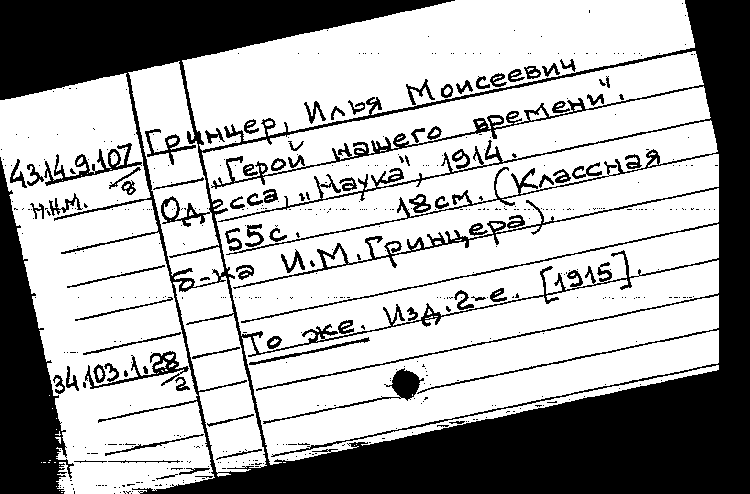 Гринцер, Илья Моисеевич
43.14.9.107/8
„Герой нашего времени“.
Н.Н.М.
Одесса, „Наука“, 1914.
55с. 18см. (Классная
б-ка И.М.Гринцера).
То же. Изд.2-е. [1915].
34.103.1.28/2